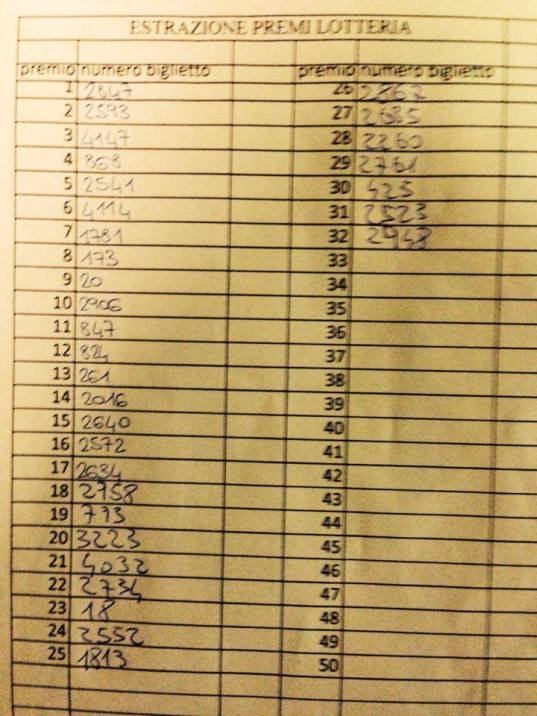 ESTRAZIONE PREMI LOTTERIA
premio numero biglietto premio numero biglietto
1 2847 26 2862
2 2593 27 2685
3 4147 28 2260
4 868 29 2761
5 2541 30 425
6 4114 31 2523
7 1781 32 2948
8 173 33
9 20 34
10 2906 35
11 847 36
12 824 37
13 261 38
14 2016 39
15 2640 40
16 2572 41
17 2634 42
18 2758 43
19 773 44
20 3223 45
21 4032 46
22 2734 47
23 18 48
24 2552 49
25 1813 50